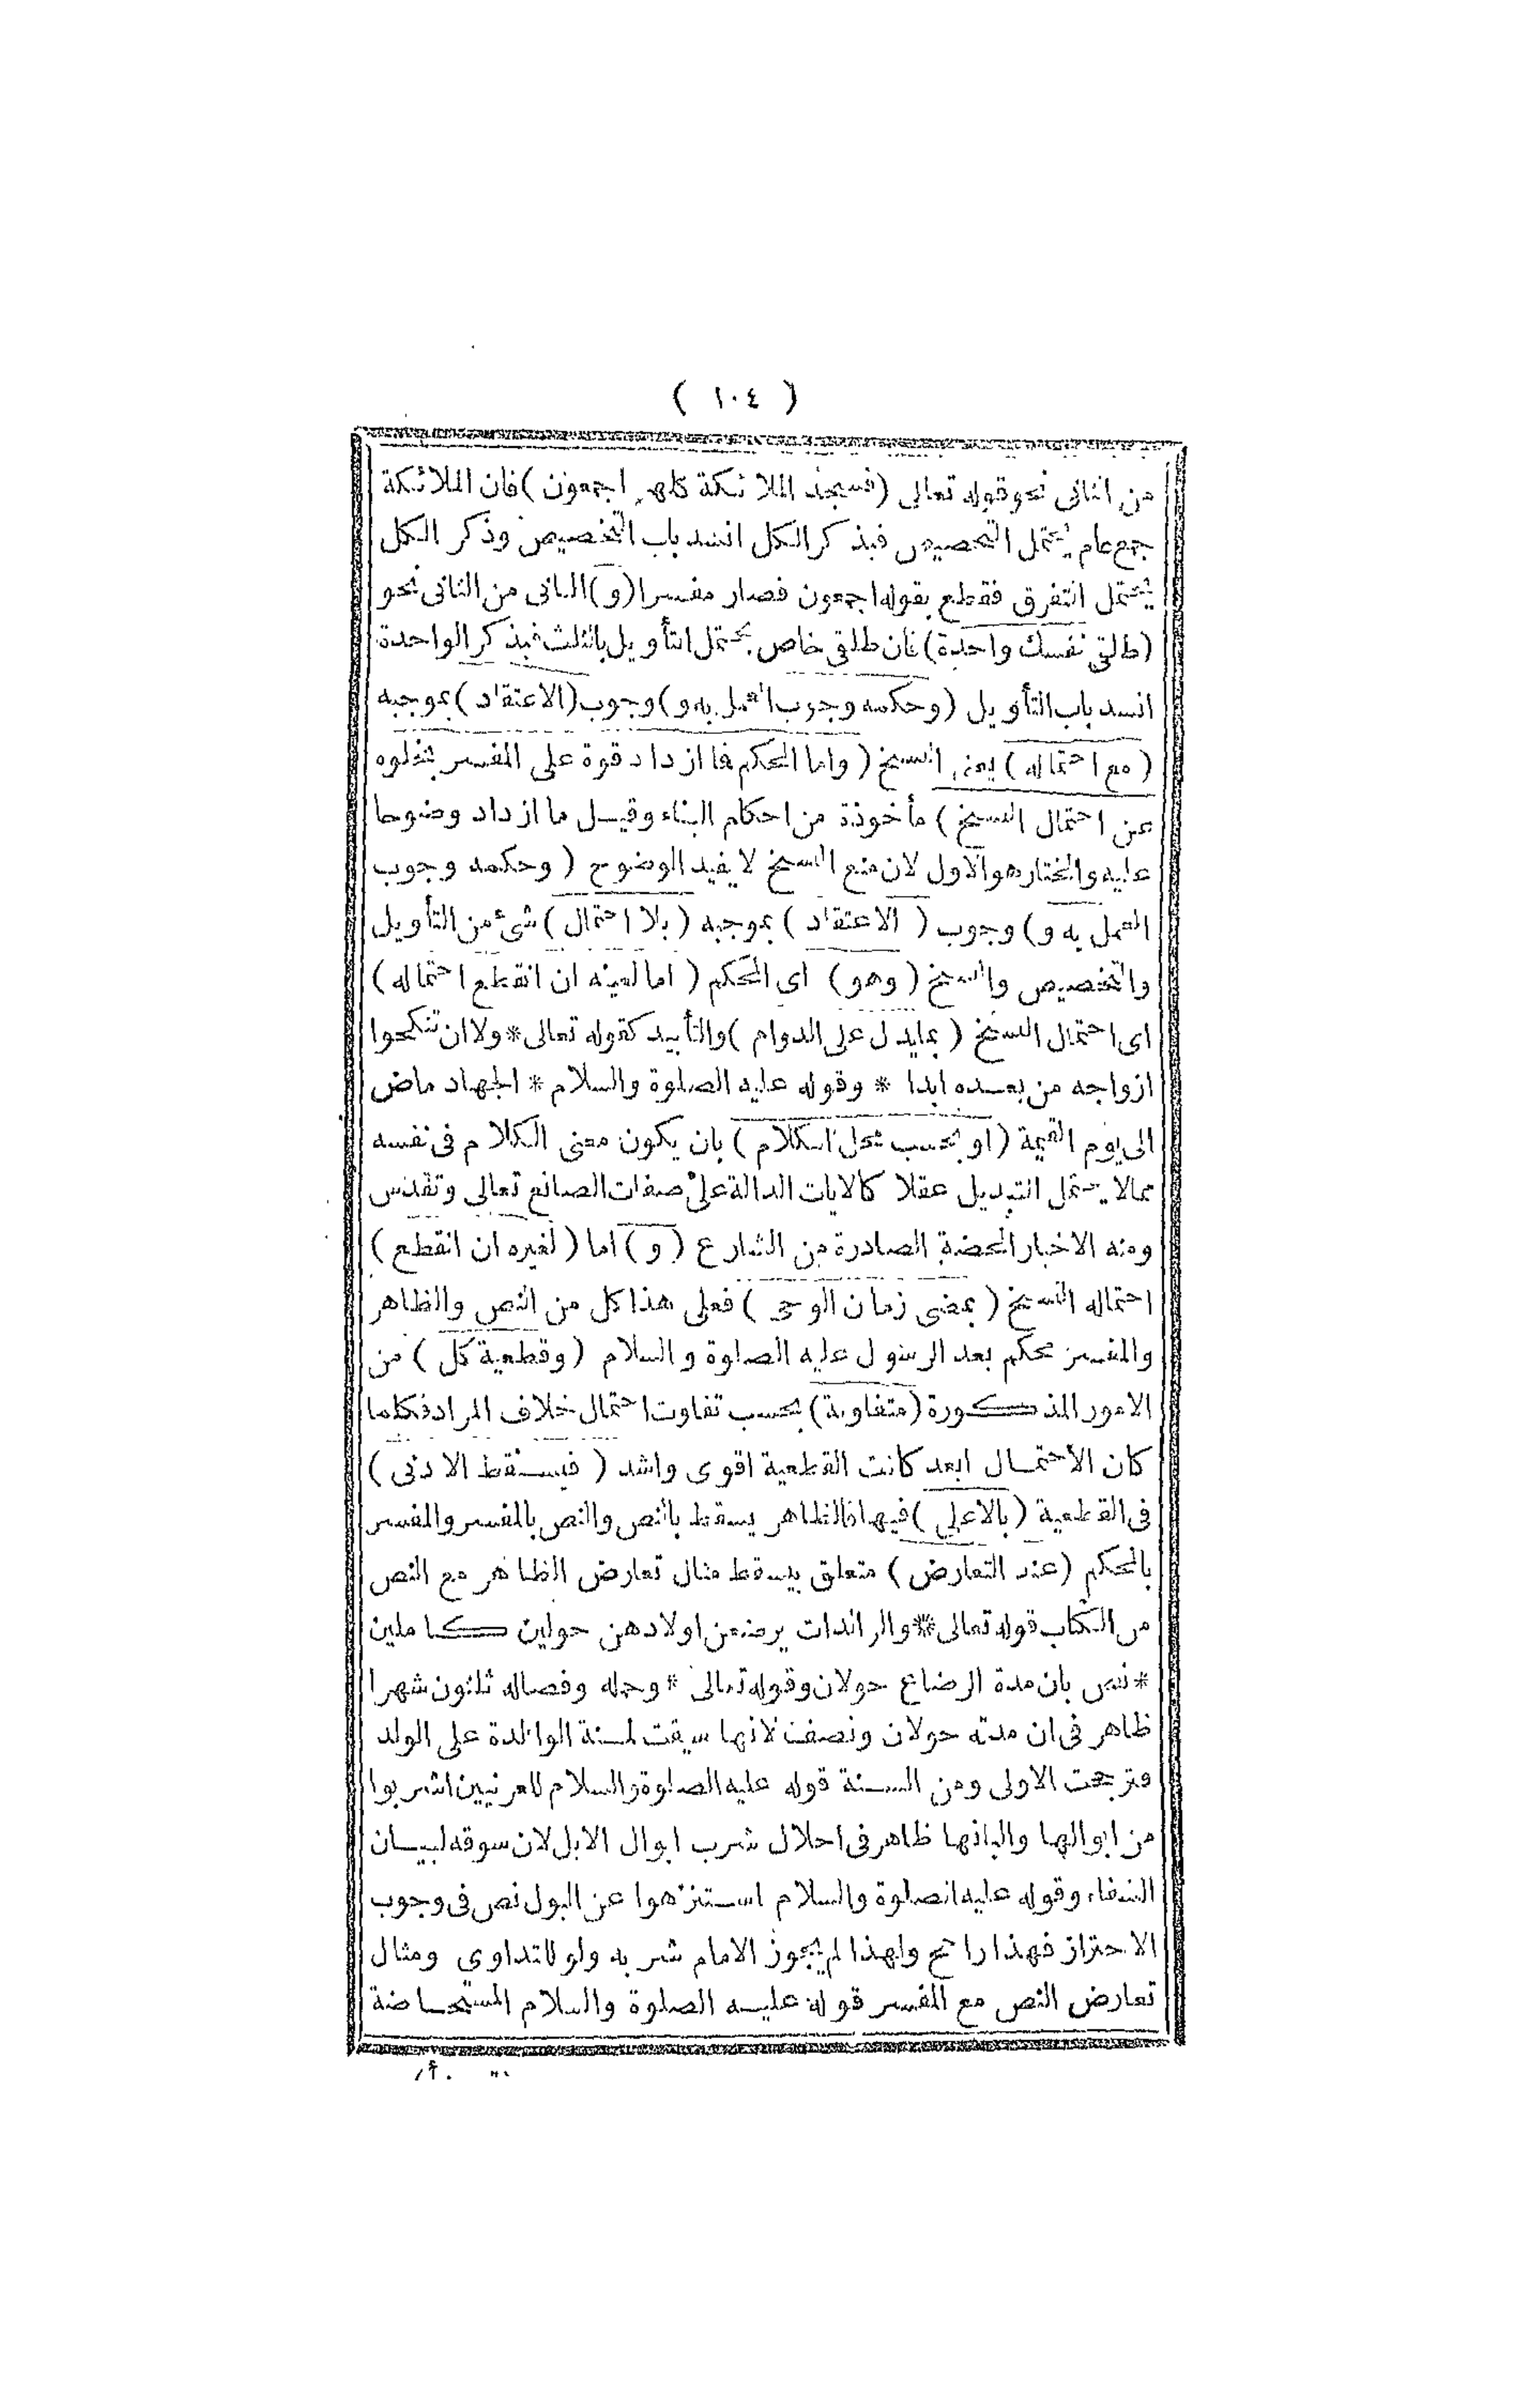 ( ١٠٤ )
من الثانى نحو قوله تعالى (فسجد الملائكة كلهم اجمعون) فان الملائكة
جمع عام يحتمل التخصيص فبذكر الكل انسد باب التخصيص وذكر الكل
يحتمل التفرق فقطع بقوله اجمعون فصار مفسرا (و) الثانى من الثانى نحو
(طلقى نفسك واحدة) فان طلقى خاص يحتمل التأويل بالثلث فبذكر الواحدة
انسد باب التأويل (وحكمه وجوب العمل به و) وجوب (الاعتقاد) بموجبه
(مع احتماله) يعنى النسخ (واما المحكم فا ازداد قوة على المفسر بخلوه
عن احتمال النسخ) مأخوذة من احكام البناء وقيل ما ازداد وضوحا
عليه والمختار هو الاول لان منع النسخ لا يفيد الوضوح (وحكمه وجوب
العمل به و) وجوب (الاعتقاد) بموجبه (بلا احتمال) شئ من التأويل
والتخصيص والنسخ (وهو) اى المحكم (اما لعينه ان انقطع احتماله)
اى احتمال النسخ (بمايدل على الدوام) والتأبيد كقوله تعالى * ولا ان تنكحوا
ازواجه من بعده ابدا * وقوله عليه الصلوة والسلام * الجهاد ماض
الى يوم القيمة (او بحسب محل الكلام) بان يكون معنى الكلام فى نفسه
ممالا يحتمل التبديل عقلا كالايات الدالة على صفات الصانع تعالى وتقدس
ومنه الاخبار المحضة الصادرة من الشارع (و) اما (لغيره ان انقطع)
احتماله النسخ (بمضى زمان الوحى) فعلى هذا كل من النص والظاهر
والمفسر محكم بعد الرسول عليه الصلوة والسلام (وقطعية كل) من
الامور المذكورة (متفاوتة) بحسب تفاوت احتمال خلاف المراد فكلما
كان الاحتمال ابعد كانت القطعية اقوى واشد (فيسقط الادنى)
فى القطعية (بالاعلى) فيها فالظاهر يسقط بالنص والنص بالمفسر والمفسر
بالمحكم (عند التعارض) متعلق بيسقط مثال تعارض الظاهر مع النص
من الكتاب قوله تعالى * والوالدات يرضعن اولادهن حولين كاملين
* نص بان مدة الرضاع حولان وقوله تعالى * وحمله وفصاله ثلثون شهرا
ظاهر فى ان مدته حولان ونصف لانها سيقت لمنة الوالدة على الولد
فترجحت الاولى ومن السنة قوله عليه الصلوة والسلام للعرنيين اشربوا
من ابوالها والبانها ظاهر فى احلال شرب ابوال الابل لان سوقه لبيان
الشفاء وقوله عليه الصلوة والسلام استنزهوا عن البول نص فى وجوب
الاحتراز فهذا راجح ولهذا لم يجوز الامام شربه ولو للتداوى ومثال
تعارض النص مع المفسر قوله عليه الصلوة والسلام المستحاضة